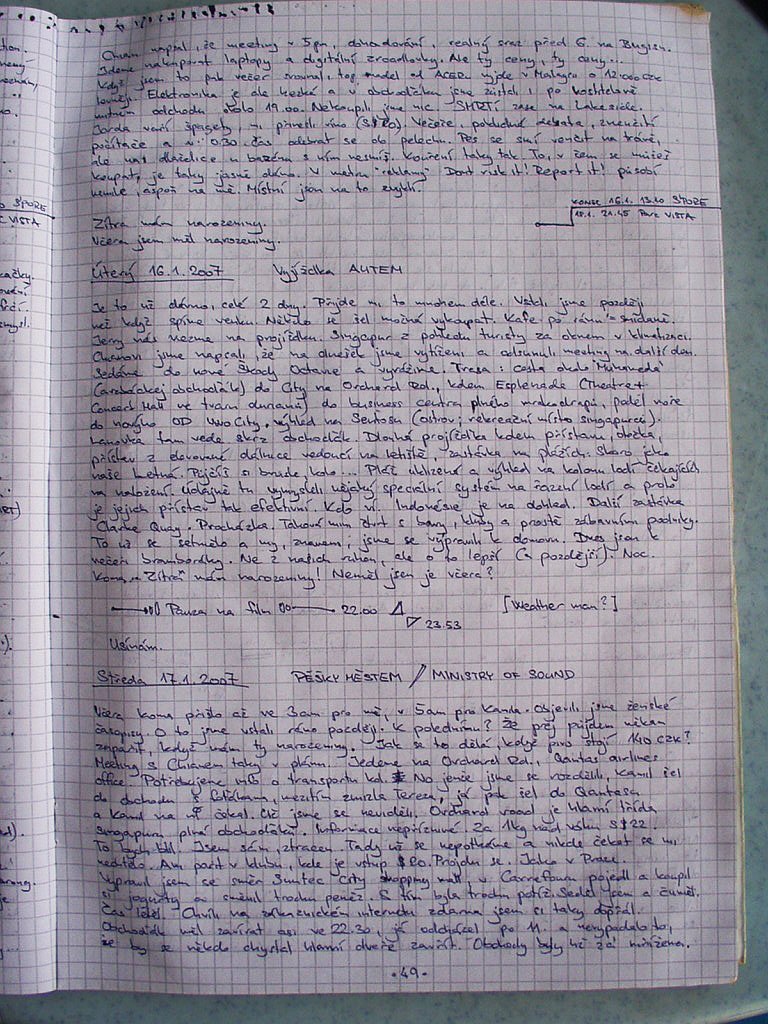 napsal, že meeting v 5pm, dohadování, realný sraz před 6. na Bugisu.
Jdeme nakupovat laptopy a digitální zrcadlovky. Ale ty ceny, ty ceny...
Když jsem to pak večer srovnal, top model od ACERu vyjde v Malaysii o 12.000 CZK
levněji. Elektronika je ale hezká a v obchoďáku jsme zůstali i po
nutném odchodu okolo 19.00. Nekoupili jsme nic. SMRTI zase na Lakeside.
Jarda vaří špagety, my přinesli víno (S$20). Večeře, poklidná debata, zneužití
počítače a v 0:30 čas odebrat se do pelechu. Pes se smí venčit na trávě,
ale na dlaždice u bazénu s ním nesmíš. Kouření taky tak. To, v čem se můžeš
koupat, je taky jasně dáno. V metru "reklamy" Dont risk it! Report it! působí
, aspoň na mě. Místní jsou na to zvyklí.
KONEC 16.1. 13.20 SPORE
18.1. 21.45 Parc VISTA
Zítra mám narozeniny.
Včera jsem měl narozeniny.
Úterý 16.1.2007 Vyjížďka AUTEM
Je to už dávno, celé 2 dny. Přijde mi to mnohem déle. Vstali jsme později
než když spíme venku. Někdo se šel možná vykoupat. Kafe po ránu = snídaně.
Jerry nás vezme na projížďku. Singapur z pohledu turisty za oknem v klimatizaci.
Chianovi jsme napsali, že na dnešek jsme vytížení a odsunuli meeting na další den.
Sedáme do nové Škody Octavie a vyrážíme. Trasa: cesta okolo "Muhameda"
(arabáckej obchoďák) do City na Orchard Rd., kolem Esplenade (Theatre +
Concert Hall ve tvaru durianů) do business centra plného mrakodrapů, podél moře
do nového OD VivoCity, výhled na Sentosu (ostrov, rekreační místo singapurců).
Lanovka tam vede skrz obchoďák. Dlouhá projížďka kolem přístavu, otočka,
přístav z elevované dálnice vedoucí na letiště, zastávka na plážích. Skoro jako
naše Letná. Půjčíš si brusle, kolo... Pláž uklizená a výhled na kolonu lodí čekajících
na naložení. Údajně tu vymysleli nějaký speciální systém na řazení lodí a proto
je jejich přístav tak efektivní. Kdo ví. Indonésie je na dohled. Další zastávka
Clarke Quay. Procházka. Takovej mini čtvrt s bary, kluby a prostě zábavními podniky.
To už se setmělo a my, znaveni, jsme se vypravili k domovu. Dnes jsou k
večeři bramboráky. Ne z našich rukou, ale o to lepší (a pozdější). Noc.
Koma. Zítra mám narozeniny! Neměl jsem je včera?
Pauza na film 22.00 23.53 [Weather man?]
Usínám.
Středa 17.1.2007 PĚŠKY MĚSTEM / MINISTRY OF SOUND
Včera koma přišlo až ve 3am pro mě, v 5am pro Kamila. Objevili jsme ženské
časopisy. O to jsme vstali ráno později. K polednímu? Že prej půjdem někam
zapařit, když mám ty narozeniny. Jak se to dělá, když pivo stojí 140 CZK?
Meeting s Chianem taky v plánu. Jedeme na Orchard Rd., Qantas airlines
office. Potřebujeme info o transportu kol. No jenže jsme se rozdělili, Kamil šel
do obchodu s foťákama, mezitím zmizla Tereza, já pak šel do Qantasu
a Kamil na mě čekal. Už jsme se neviděli. Orchard road je hlavní třída
Singapuru plná obchoďáků. Informace nepříznivé. Za 1kg nad váhu S$22.
To bych blil. Jsem sám, ztracen. Tady už se nepotkáme a nikde čekat se mi
nechtělo. Ani pařit v klubu, kde je vstup $20. Projdu se. Jako v Praze.
Vypravil jsem se směr Suntec City shopping mall. V Carrefouru pojedl a koupil
si jogurty a směnil trochu peněz. S tím byla trochu potíž. Seděl jsem a čuměl.
Čas letěl. Chvíli na zákaznickém internetu zdarma jsem si taky dopřál.
Obchoďák měl zavírat asi ve 22.30, já odcházel po 11. a nevypadalo to,
že by se někdo chystal hlavní dveře zavřít. Obchody byly už za mřížema.
- 49 -